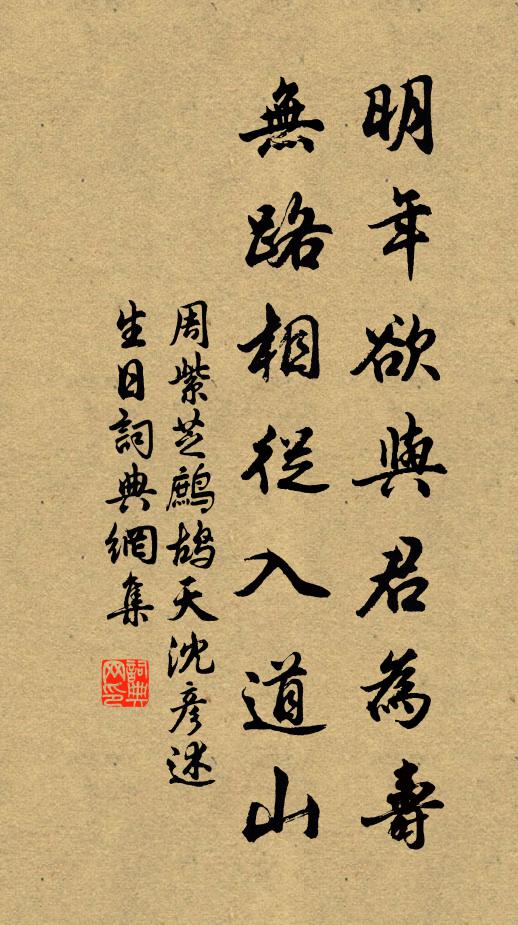 明年欲與君為壽
無路相從入道山
周紫芝鷓鴣天沈彥述
生日詞典網集
詞典网印